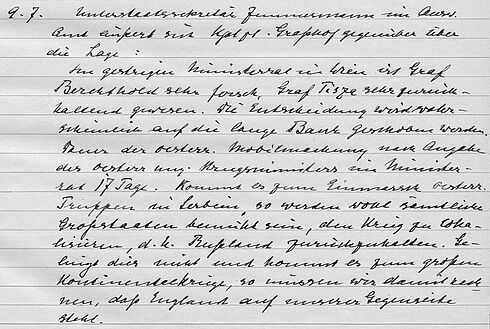 9. 7. Unterstaatssekretär Zimmermann im Ausw.
Amt äußert sich Kptlt. Graßhof gegenüber über
die Lage:
Im gestrigen Ministerrat in Wien ist Graf
Berchthold sehr forsch, Graf Tisza sehr zurück-
haltend gewesen. Die Entscheidung wird wahr-
scheinlich auf die lange Bank geschoben werden.
Dauer der oesterr. Mobilmachung nach Angabe
des oesterr. ung. Kriegsministers im Minister-
rat 17 Tage. Kommt es zum Einmarsch oesterr.
Truppen in Serbien, so werden wohl sämtliche
Großstaaten bemüht sein, den Krieg zu loka-
lisieren, d. h. Rußland zurückzuhalten. Ge-
lingt dies nicht und kommt es zum großen
Kontinentalkriege, so müssen wir damit rech-
nen, daß England auf unserer Gegenseite
steht.